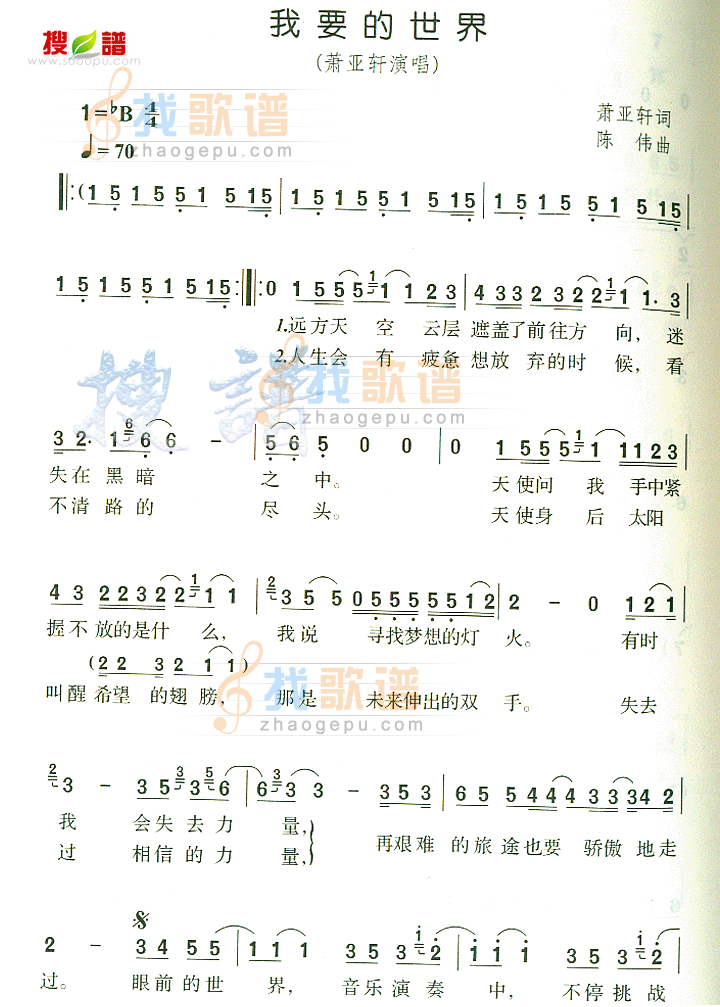 我要的世界
搜谱
www.sooopu.com
(萧亚轩演唱)
1=♭B 4/4
♩=70
萧亚轩词
陈 伟曲
找歌谱
zhaogepu.com
‖:(1 5 1 5 5 1 5 5 15 | 1 5 1 5 5 1 5 5 15 | 1 5 1 5 5 1 5 5 15
1 5 1 5 5 1 5 5 15:‖:0 1 5 5 5 1 1 1 2 3 | 4 3 3 2 3 2 2 1 1 1· 3
1.远方天 空 云层 遮盖了前往方 向，迷
2.人生会 有 疲惫 想放 弃的时 候，看
搜谱
找歌谱
zhaogepu.com
3 2· 1 6 6 6 - | 5 6 5 0 0 0 | 0 1 5 5 5 1 1 1123
失在黑暗 之中。 天使问 我 手中紧
不清路的 尽头。 天使身 后 太阳
4 3 2 2 3 2 2 1 1 1 | 2 3 5 5 0 5 5 5 5 5 1 2 | 2 - 0 1 2 1
握不放的是什 么， 我说 寻找梦想的灯 火。 有时
(2 2 3 2 2 1 1)
叫醒希望 的翅膀， 那是 未来伸出的双 手。 失去
找歌谱
zhaogepu.com
2 3 - 3 5 3 3 5 6 | 6 3 3 3 - 3 5 3 | 5 6 5 5 4 4 4 3 3 3 4 2
我 会失去力 量， 再艰难 的旅途也要 骄傲 地走
过 相信的力 量，
2 - 3 4 5 5 | 1 1 1 1 3 4 5 5 | 1 1 1 1 3 5 5 1
过。 眼前的世 界， 音乐演奏 中， 不停挑战